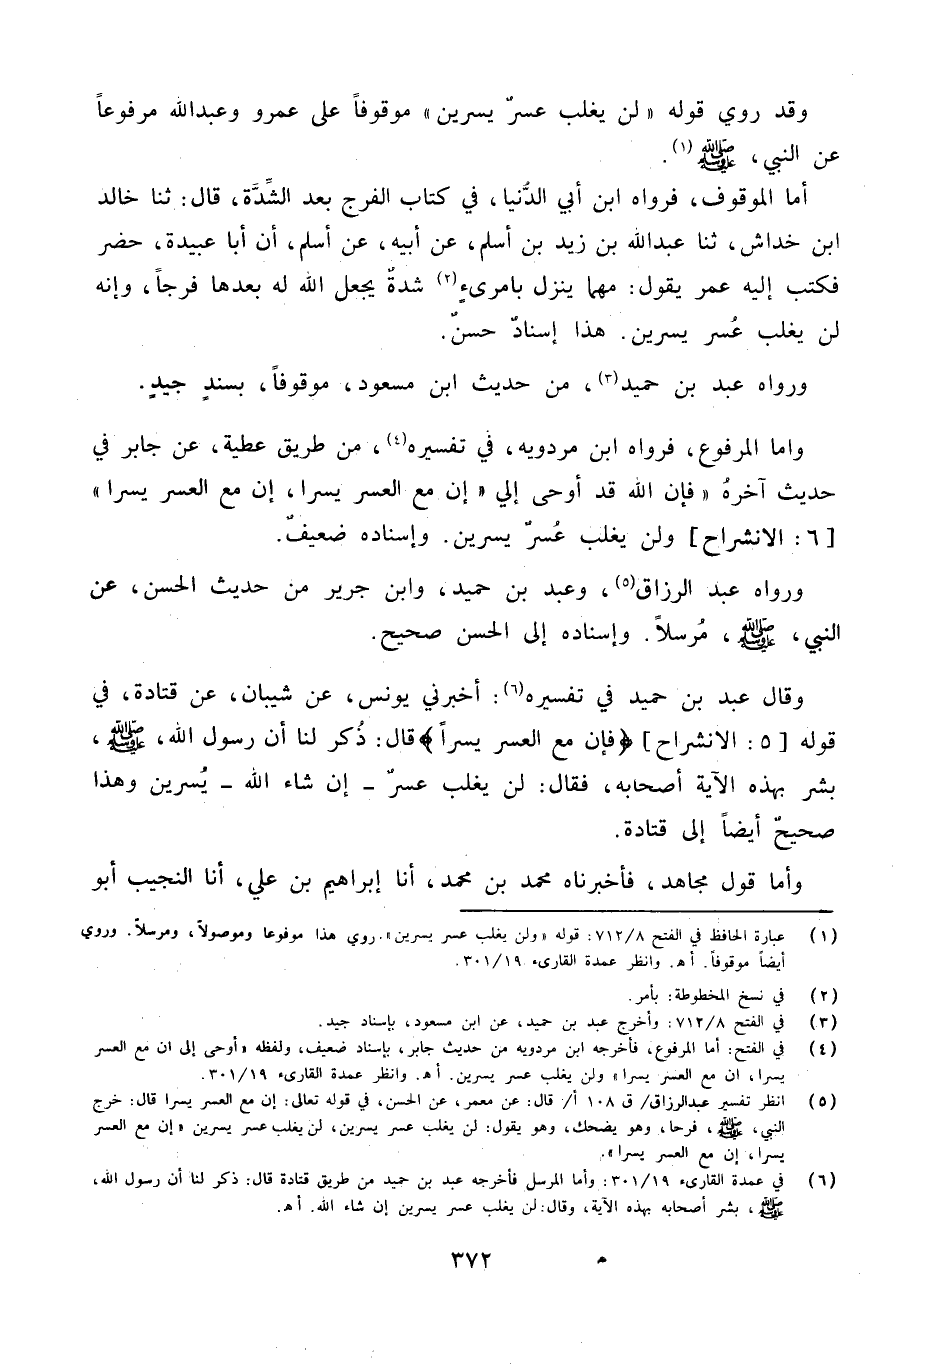 وقد روي قوله « لن يغلب عسرٌ يسرين » موقوفاً على عمرو وعبدالله مرفوعاً
عن النبي، ﷺ (١).
أما الموقوف، فرواه ابن أبي الدُّنيا، في كتاب الفرج بعد الشِّدَّة، قال: ثنا خالد
ابن خداش، ثنا عبدالله بن زيد بن أسلم، عن أبيه، عن أسلم، أن أبا عبيدة، حضر
فكتب إليه عمر يقول: مهما ينزل بامرىءٍ(٢) شدةٌ يجعل الله له بعدها فرجاً، وإنه
لن يغلب عُسر يسرين. هذا إسنادٌ حسنٌ.
ورواه عبد بن حميد(٣)، من حديث ابن مسعود، موقوفاً، بسندٍ جيدٍ.
واما المرفوع، فرواه ابن مردويه، في تفسيره(٤)، من طريق عطية، عن جابر في
حديث آخرهُ « فإن الله قد أوحى إلي « إن مع العسر يسرا، إن مع العسر يسرا »
[ ٦ : الانشراح ] ولن يغلب عُسرٌ يسرين. وإسناده ضعيفٌ.
ورواه عبد الرزاق(٥)، وعبد بن حميد، وابن جرير من حديث الحسن، عن
النبي، ﷺ، مُرسلاً. وإسناده إلى الحسن صحيح.
وقال عبد بن حميد في تفسيره(٦): أخبرني يونس، عن شيبان، عن قتادة، في
قوله [ ٥ : الانشراح ] ﴿فإن مع العسر يسراً﴾ قال: ذُكر لنا أن رسول الله، ﷺ،
بشر بهذه الآية أصحابه، فقال: لن يغلب عسرٌ – إن شاء الله – يُسرين وهذا
صحيحٌ أيضاً إلى قتادة.
وأما قول مجاهد، فأخبرناه محمد بن محمد، أنا إبراهيم بن علي، أنا النجيب أبو
(١) عبارة الحافظ في الفتح ٧١٢/٨: قوله «ولن يغلب عسر يسرين». روي هذا موفوعا وموصولاً، ومرسلاً. وروي
أيضاً موقوفاً. أ هـ. وانظر عمدة القارىء ٣٠١/١٩.
(٢) في نسخ المخطوطة: بأمر.
(٣) في الفتح ٧١٢/٨: وأخرج عبد بن حميد، عن ابن مسعود، بإسناد جيد.
(٤) في الفتح: أما المرفوع، فأخرجه ابن مردويه من حديث جابر، بإسناد ضعيف، ولفظه «أوحى إلى ان مع العسر
يسرا، ان مع العسر يسرا» ولن يغلب عسر يسرين. أ هـ. وانظر عمدة القارىء ٣٠١/١٩.
(٥) انظر تفسير عبدالرزاق/ ق ١٠٨ أ/ قال: عن معمر، عن الحسن، في قوله تعالى: إن مع العسر يسرا قال: خرج
النبي، ﷺ، فرحا، وهو يضحك، وهو يقول: لن يغلب عسر يسرين، لن يغلب عسر يسرين «إن مع العسر
يسرا، إن مع العسر يسرا».
(٦) في عمدة القارىء ٣٠١/١٩: وأما المرسل فأخرجه عبد بن حميد من طريق قتادة قال: ذكر لنا أن رسول الله،
ﷺ، بشر أصحابه بهذه الآية، وقال: لن يغلب عسر يسرين إن شاء الله. أ هـ.
٣٧٢